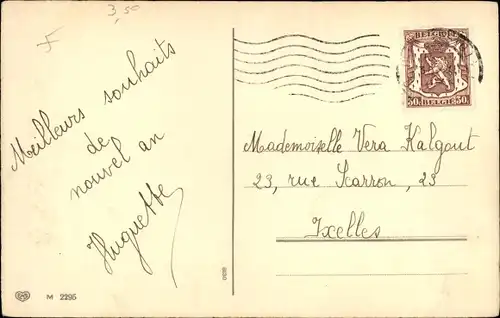 3,50
Meilleurs souhaits
de
nouvel an
Huguette
M 2295
BELGIQUE
50c 50c
BELGIE
Mademoiselle Vera Kalgout
23, rue Scarron, 23
Ixelles